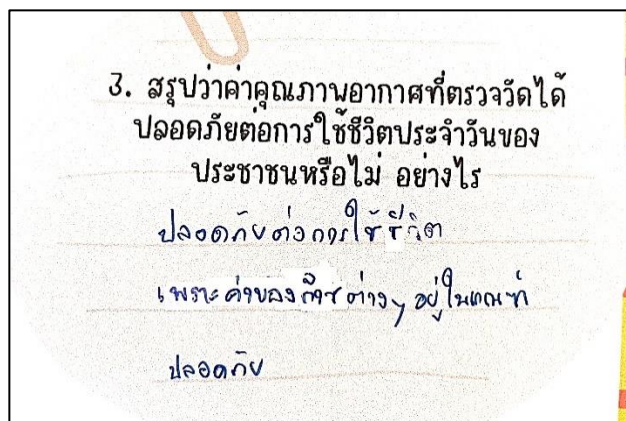 3. สรุปว่าค่าคุณภาพอากาศที่ตรวจวัดได้
ปลอดภัยต่อการใช้ชีวิตประจำวันของ
ประชาชนหรือไม่ อย่างไร
ปลอดภัยต่อการใช้ชีวิต
เพราะค่าของก๊าซต่างๆ อยู่ในเกณฑ์
ปลอดภัย